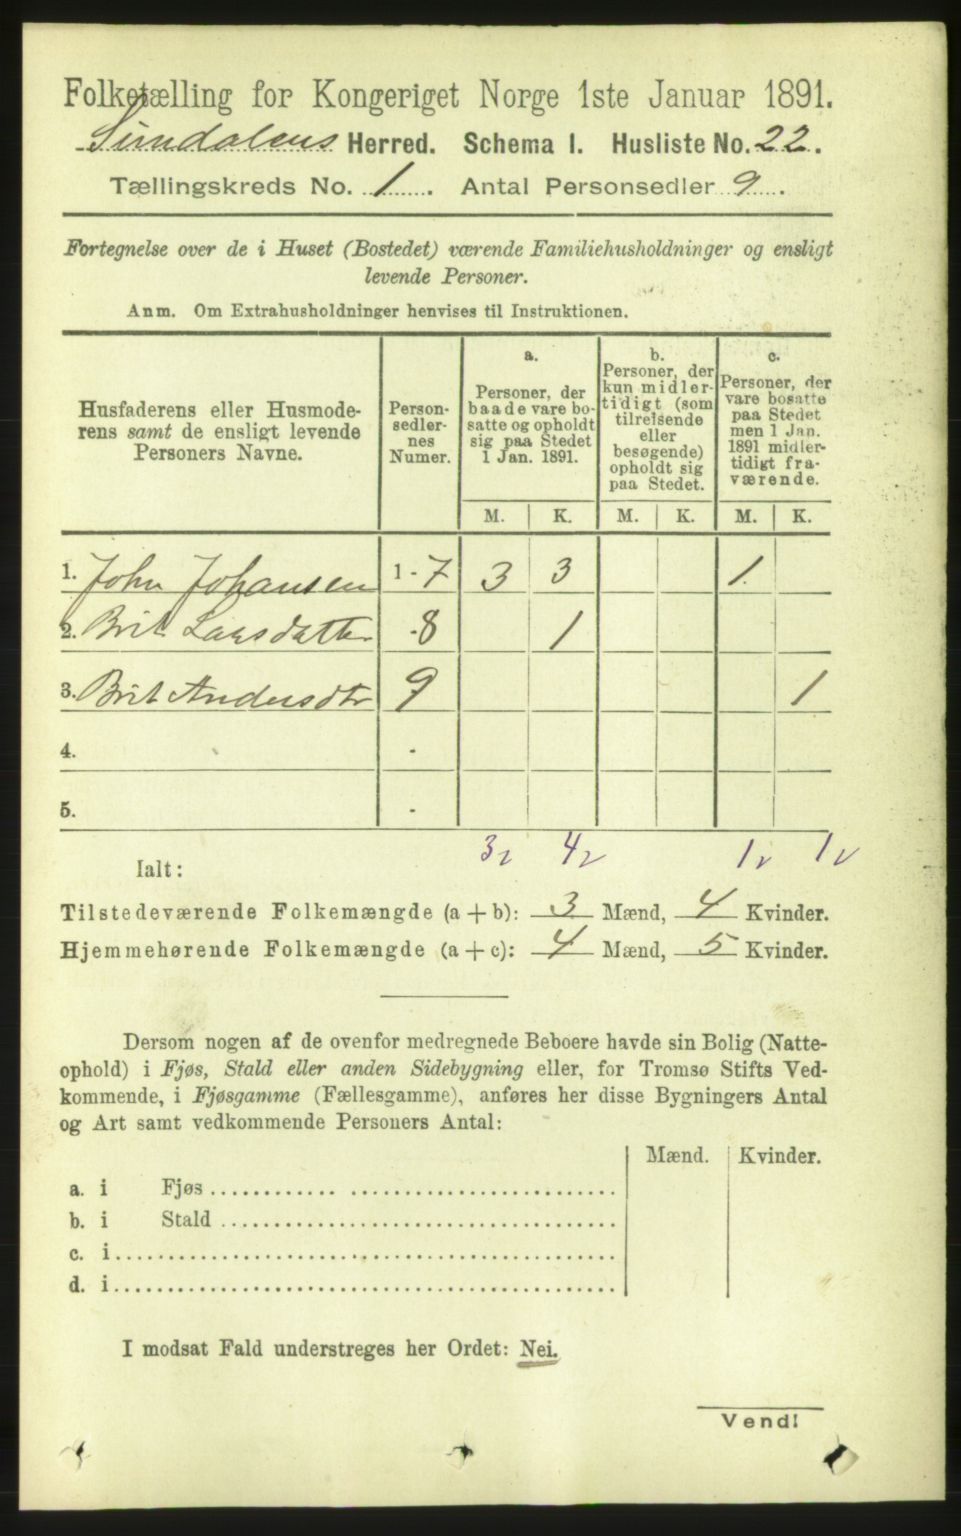 Folketælling for Kongeriget Norge 1ste Januar 1891.
Sundalens Herred. Schema I. Husliste No. 22.
Tællingskreds No. 1. Antal Personsedler 9.
Fortegnelse over de i Huset (Bostedet) værende Familiehusholdninger og ensligt
levende Personer.
Anm. Om Extrahusholdninger henvises til Instruktionen.
Husfaderens eller Husmode-
rens samt de ensligt levende
Personers Navne.
Person-
sedler-
nes
Numer.
a.
Personer, der
baade vare bo-
satte og opholdt
sig paa Stedet
1 Jan. 1891.
b.
Personer, der
kun midler-
tidigt (som
tilreisende
eller
besøgende)
opholdt sig
paa Stedet.
c.
Personer, der
vare bosatte
paa Stedet
men 1 Jan.
1891 midler-
tidigt fra-
værende.
M. K. M. K. M. K.
1. John Johansen 1-7 3 3 1.
2. Brit Larsdatter -8 1
3. Brit Andersdtr 9 1
4. -
5. -
3 4 1 1
Ialt:
Tilstedeværende Folkemængde (a+b): 3 Mænd, 4 Kvinder.
Hjemmehørende Folkemængde (a+c): 4 Mænd, 5 Kvinder.
Dersom nogen af de ovenfor medregnede Beboere havde sin Bolig (Natte-
ophold) i Fjøs, Stald eller anden Sidebygning eller, for Tromsø Stifts Ved-
kommende, i Fjøsgamme (Fællesgamme), anføres her disse Bygningers Antal
og Art samt vedkommende Personers Antal:
Mænd. Kvinder.
a. i Fjøs
b. i Stald
c. i
d. i
I modsat Fald understreges her Ordet: Nei.
Vend!